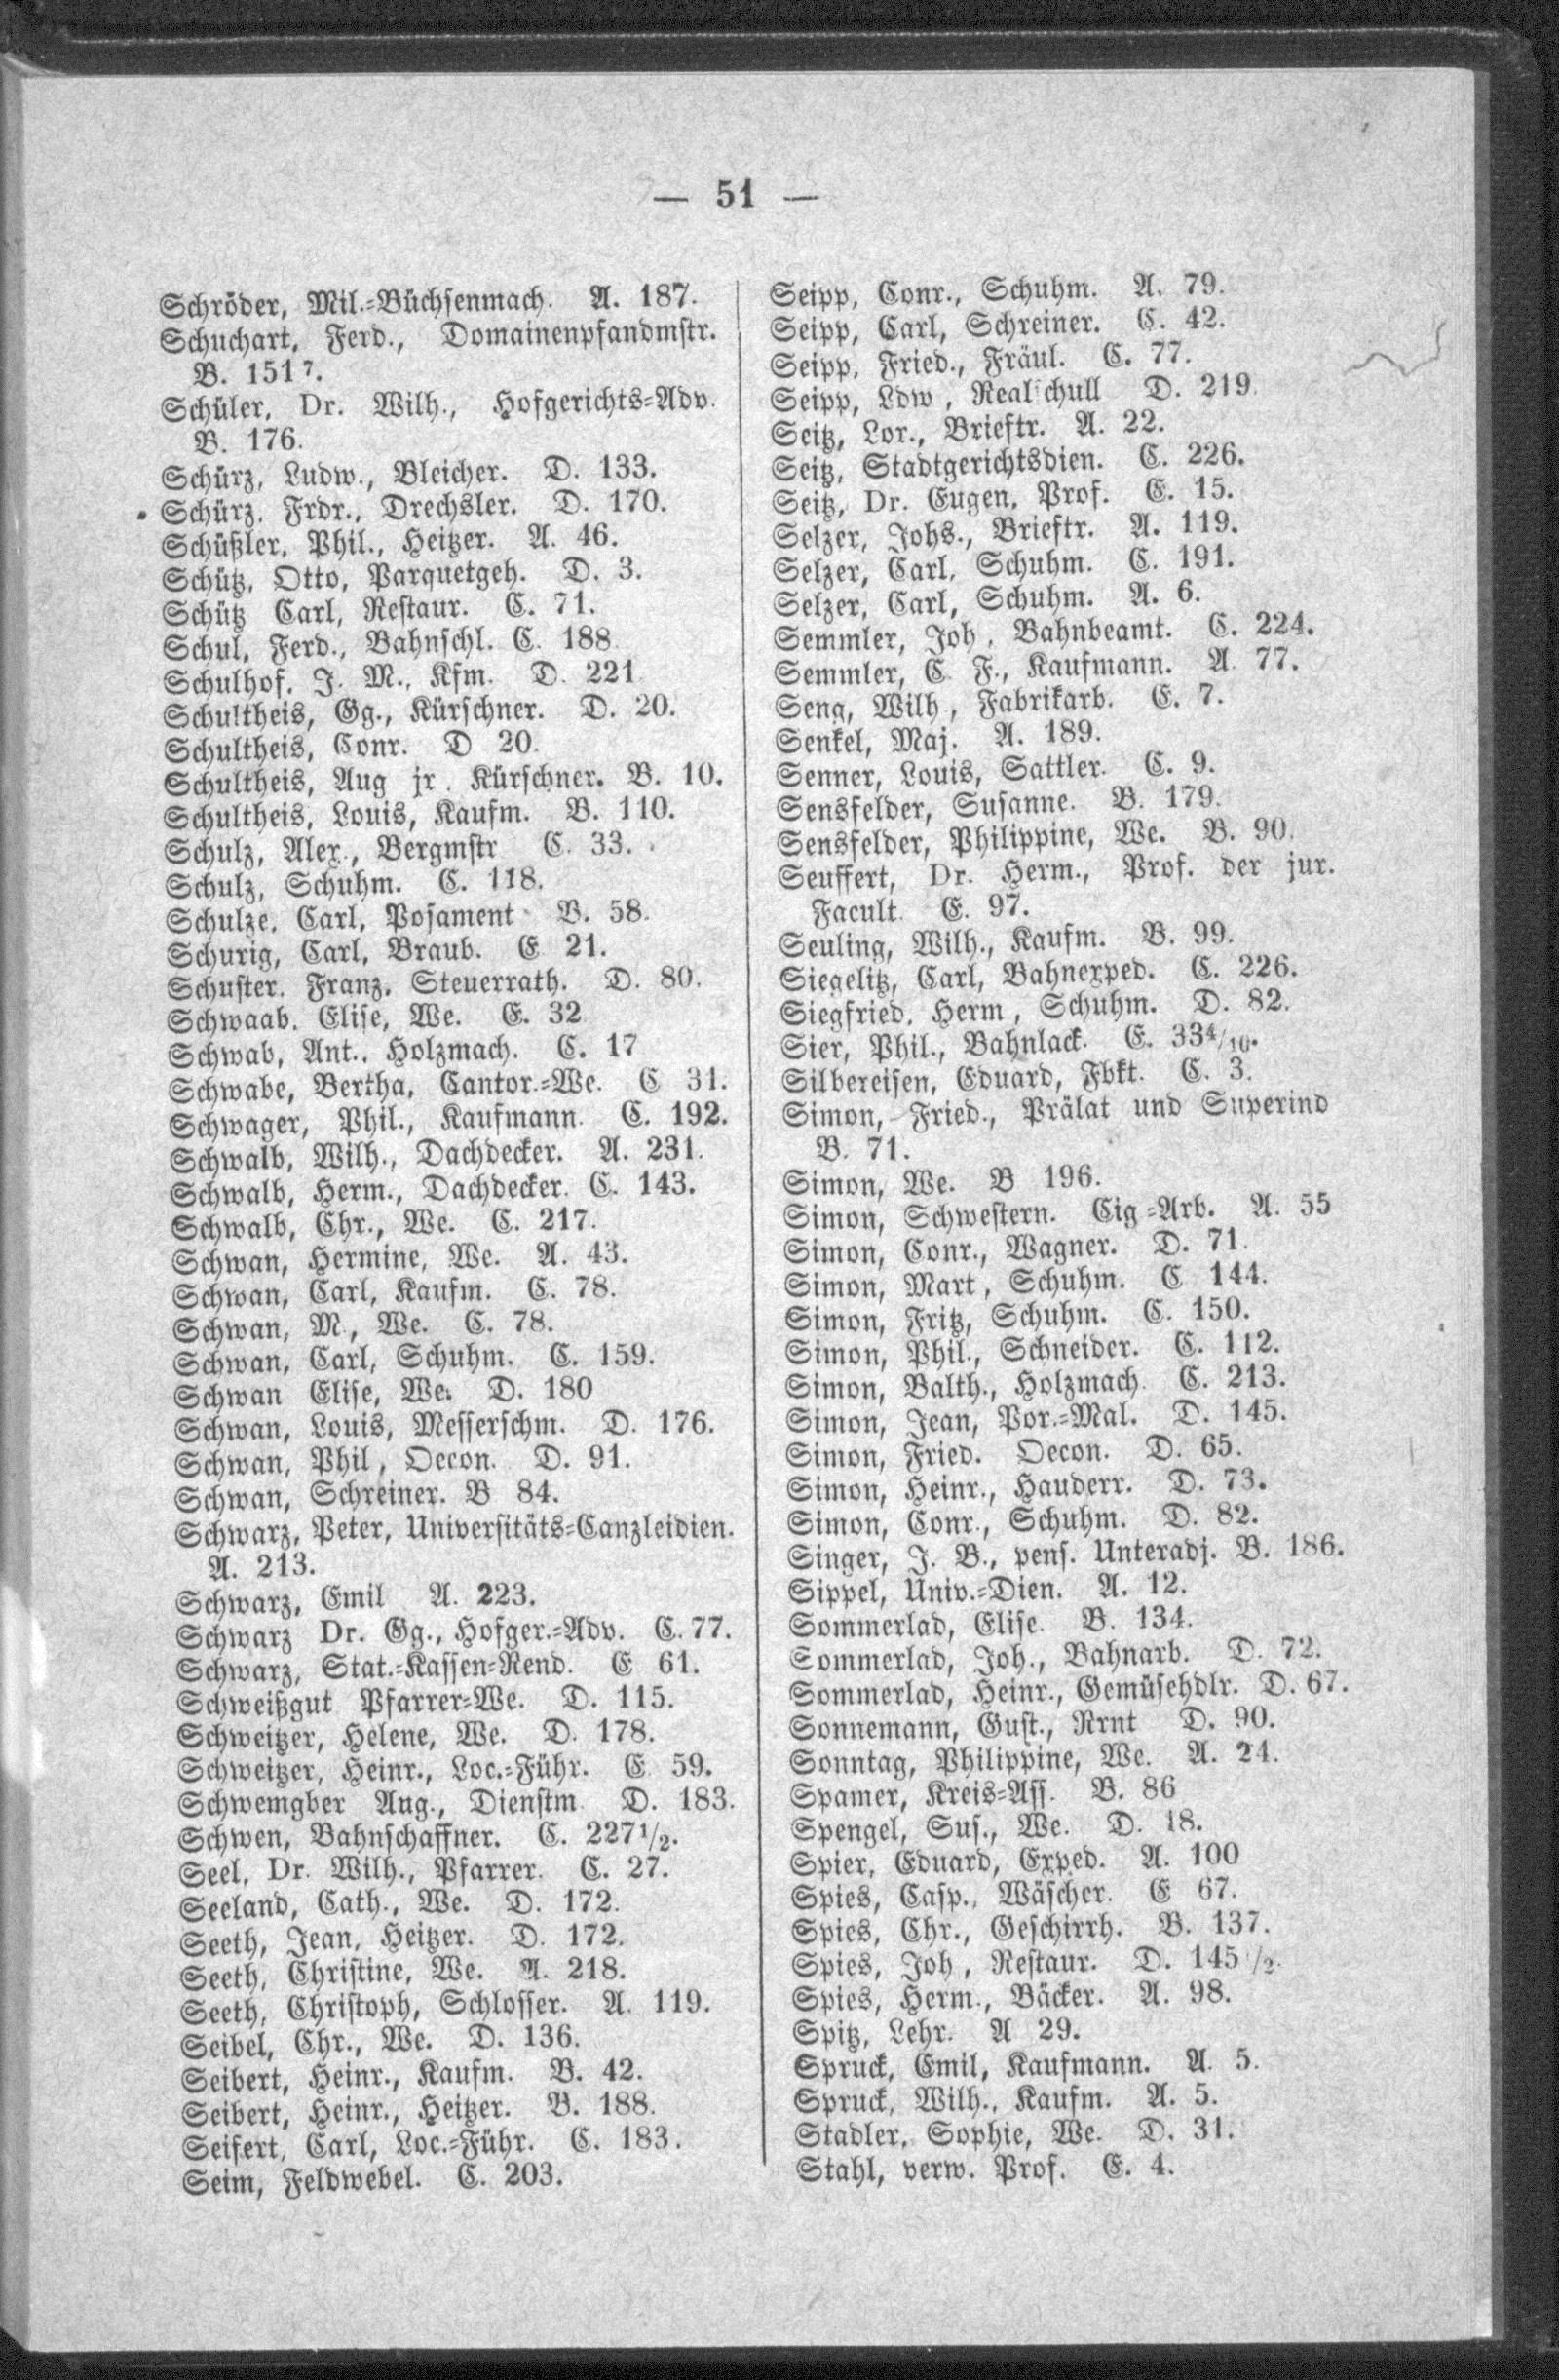 — 51 —
Schröder, Mil.-Büchsenmach. A. 187.
Schuchart, Ferd., Domainenpfandmstr.
B. 151⁷.
Schüler, Dr. Wilh., Hofgerichts-Adv.
B. 176.
Schürz, Ludw., Bleicher. D. 133.
Schürz, Frdr., Drechsler. D. 170.
Schüßler, Phil., Heitzer. A. 46.
Schütz, Otto, Parquetgeh. D. 3.
Schütz Carl, Restaur. C. 71.
Schul, Ferd., Bahnschl. C. 188
Schulhof, J. M., Kfm. D. 221
Schultheis, Gg., Kürschner. D. 20.
Schultheis, Conr. D 20.
Schultheis, Aug jr. Kürschner. B. 10.
Schultheis, Louis, Kaufm. B. 110.
Schulz, Alex., Bergmstr C. 33.
Schulz, Schuhm. C. 118.
Schulze, Carl, Posament B. 58.
Schurig, Carl, Braub. E 21.
Schuster, Franz, Steuerrath. D. 80.
Schwaab, Elise, We. E. 32
Schwab, Ant., Holzmach. C. 17
Schwabe, Bertha, Cantor.-We. C 31.
Schwager, Phil., Kaufmann. C. 192.
Schwalb, Wilh., Dachdecker. A. 231.
Schwalb, Herm., Dachdecker. C. 143.
Schwalb, Chr., We. C. 217.
Schwan, Hermine, We. A. 43.
Schwan, Carl, Kaufm. C. 78.
Schwan, M., We. C. 78.
Schwan, Carl, Schuhm. C. 159.
Schwan Elise, We. D. 180
Schwan, Louis, Messerschm. D. 176.
Schwan, Phil, Oecon. D. 91.
Schwan, Schreiner. B 84.
Schwarz, Peter, Universitäts-Canzleidien.
A. 213.
Schwarz, Emil A. 223.
Schwarz Dr. Gg., Hofger.-Adv. C. 77.
Schwarz, Stat.-Kassen-Rend. E 61.
Schweißgut Pfarrer-We. D. 115.
Schweitzer, Helene, We. D. 178.
Schweitzer, Heinr., Loc.-Führ. E 59.
Schwemgber Aug., Dienstm. D. 183.
Schwen, Bahnschaffner. C. 227¹/₂.
Seel, Dr. Wilh., Pfarrer. C. 27.
Seeland, Cath., We. D. 172.
Seeth, Jean, Heitzer. D. 172.
Seeth, Christine, We. A. 218.
Seeth, Christoph, Schlosser. A. 119.
Seibel, Chr., We. D. 136.
Seibert, Heinr., Kaufm. B. 42.
Seibert, Heinr., Heitzer. B. 188.
Seifert, Carl, Loc.-Führ. C. 183.
Seim, Feldwebel. C. 203.
Seipp, Conr., Schuhm. A. 79.
Seipp, Carl, Schreiner. C. 42.
Seipp, Fried., Fräul. C. 77.
Seipp, Ldw, Realschull D. 219.
Seitz, Lor., Brieftr. A. 22.
Seitz, Stadtgerichtsdien. C. 226.
Seitz, Dr. Eugen, Prof. E. 15.
Selzer, Johs., Brieftr. A. 119.
Selzer, Carl, Schuhm. C. 191.
Selzer, Carl, Schuhm. A. 6.
Semmler, Joh, Bahnbeamt. C. 224.
Semmler, C. F., Kaufmann. A. 77.
Seng, Wilh, Fabrikarb. E. 7.
Senkel, Maj. A. 189.
Senner, Louis, Sattler. C. 9.
Sensfelder, Susanne. B. 179.
Sensfelder, Philippine, We. B. 90.
Seuffert, Dr. Herm., Prof. der jur.
Facult. E. 97.
Seuling, Wilh., Kaufm. B. 99.
Siegelitz, Carl, Bahnexped. C. 226.
Siegfried, Herm, Schuhm. D. 82.
Sier, Phil., Bahnlack. E. 33⁴/₁₀.
Silbereisen, Eduard, Fbkt. C. 3.
Simon, Fried., Prälat und Superind
B. 71.
Simon, We. B 196.
Simon, Schwestern. Cig-Arb. A. 55
Simon, Conr., Wagner. D. 71.
Simon, Mart, Schuhm. C 144.
Simon, Fritz, Schuhm. C. 150.
Simon, Phil., Schneider. C. 112.
Simon, Balth., Holzmach. C. 213.
Simon, Jean, Por.-Mal. D. 145.
Simon, Fried. Oecon. D. 65.
Simon, Heinr., Hauderr. D. 73.
Simon, Conr., Schuhm. D. 82.
Singer, J. B., pens. Unteradj. B. 186.
Sippel, Univ.-Dien. A. 12.
Sommerlad, Elise. B. 134.
Sommerlad, Joh., Bahnarb. D. 72.
Sommerlad, Heinr., Gemüsehdlr. D. 67.
Sonnemann, Gust., Rrnt D. 90.
Sonntag, Philippine, We. A. 24.
Spamer, Kreis-Ass. B. 86
Spengel, Sus., We. D. 18.
Spier, Eduard, Exped. A. 100
Spies, Casp., Wäscher. E 67.
Spies, Chr., Geschirrh. B. 137.
Spies, Joh, Restaur. D. 145¹/₂.
Spies, Herm., Bäcker. A. 98.
Spitz, Lehr. A 29.
Spruck, Emil, Kaufmann. A. 5.
Spruck, Wilh., Kaufm. A. 5.
Stadler, Sophie, We. D. 31.
Stahl, verw. Prof. E. 4.